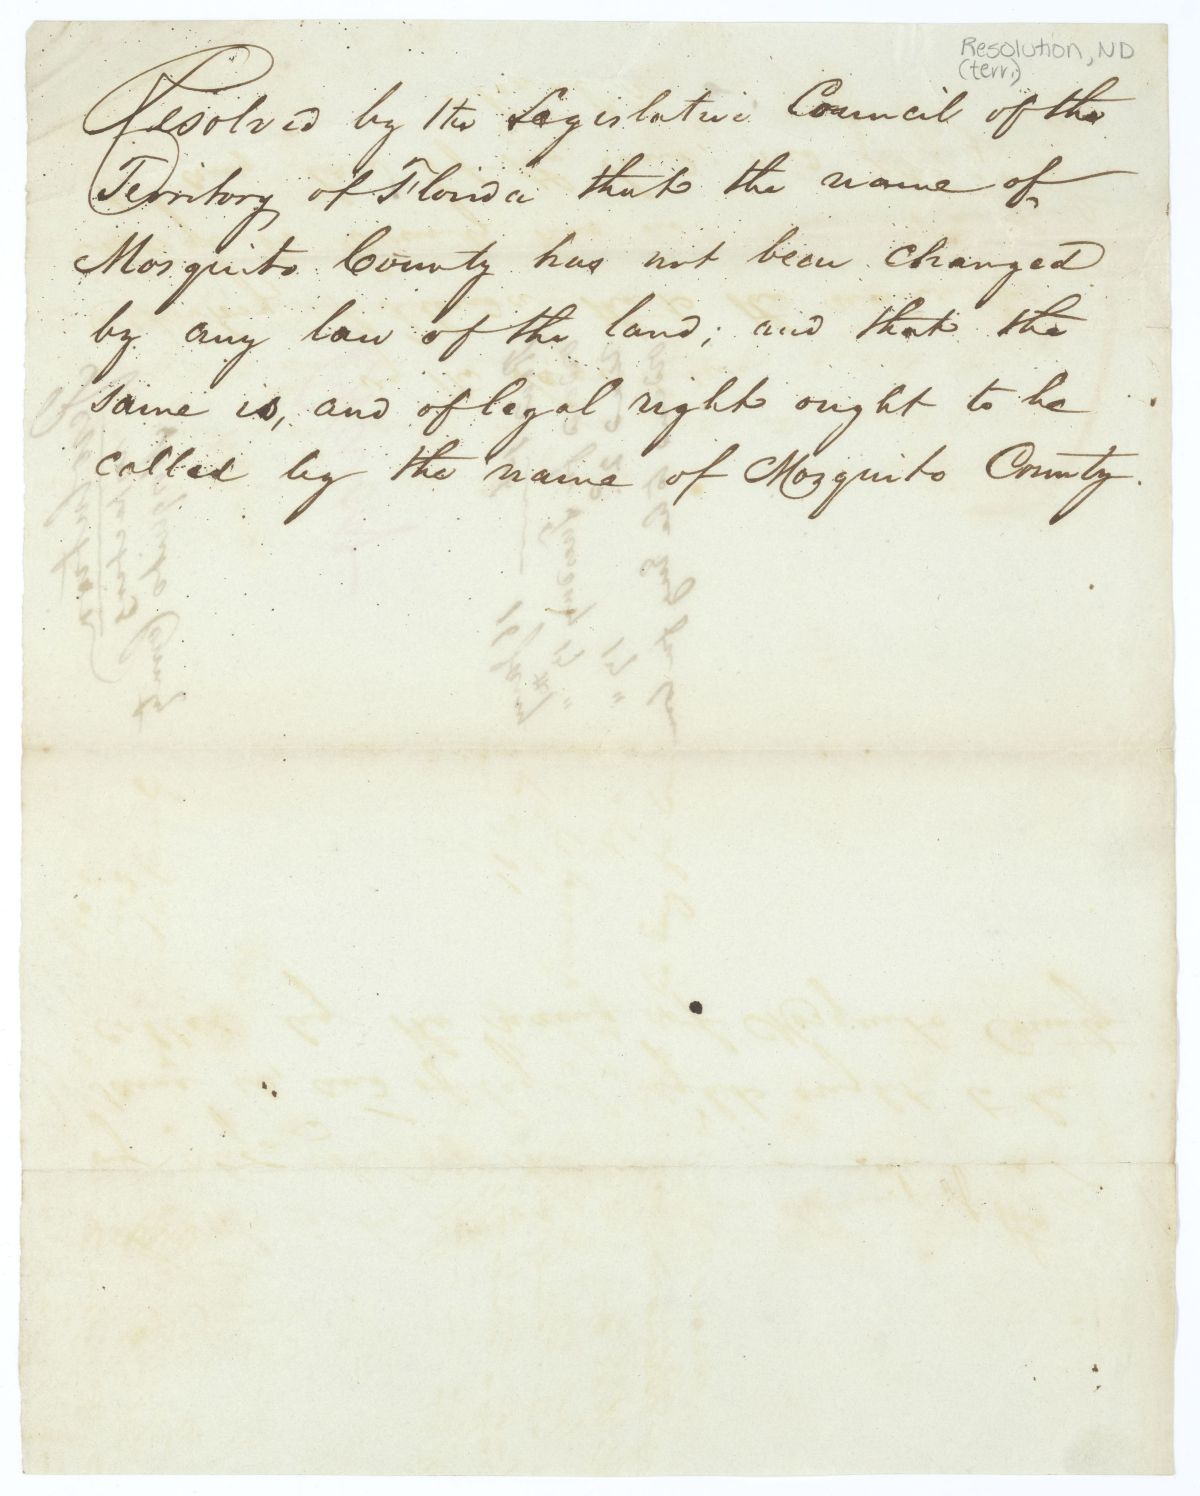 Resolution, ND
(terr.)
Resolved by the Legislative Council of the
Territory of Florida that the name of
Mosquito County has not been changed
by any law of the land; and that the
same is, and of legal right ought to be
called by the name of Mozquito County.